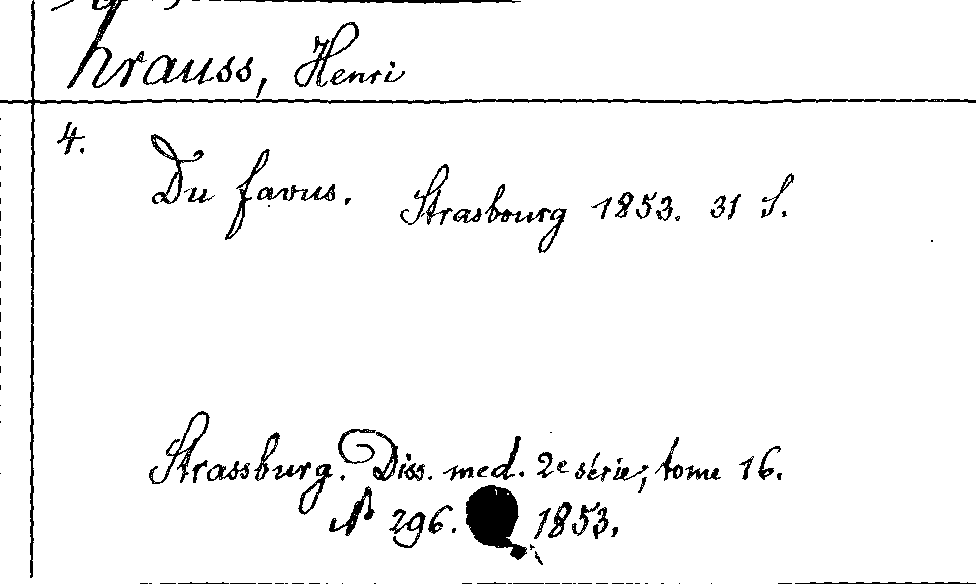 Krauss, Henri
4.
Du favus. Strasbourg 1853. 31 S.
Strassburg. Diss. med. 2e série, tome 16.
N 296. 1853.